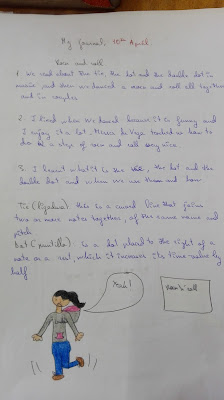 My journal, 10th April
Rock and roll
1. We read about the tie, the dot and the double dot in
music and then we danced a rock and roll all together
and in couples
2. I liked when we danced because it is funny and
I enjoy it a lot. Merce de Vega teached us how to
do a steps of rock and roll very nice
3. I learnt what it is the tie, the dot and the
double dot and when we use them and how
Tie (ligadura): this is a curved line that joins
two or more notes together, of the same name and
pitch
Dot (puntillo): is a dot placed to the right of a
note or a rest, which it increases its time-value by
half
Yeah!
Rock &' roll